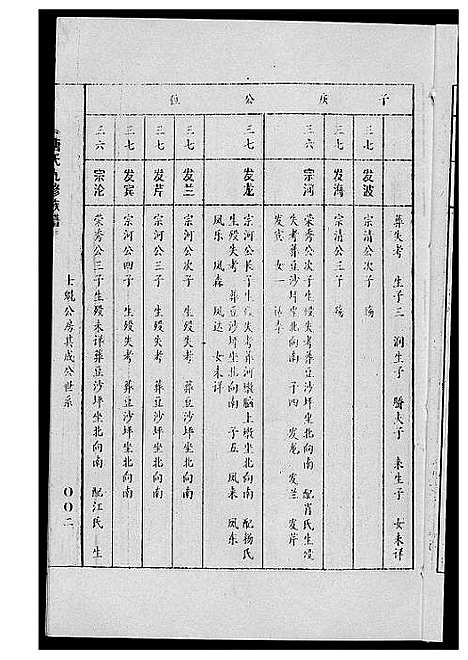 子庆公位
葬失考 生子三 润生子 骄夫子 来生子 女未详
三七 发波 宗清公次子 殇
三七 发海 宗清公三子 殇
三六 宗河 荣秀公次子生殁失考葬豆沙坪坐北向南 配肖氏生殁
失考葬豆沙坪坐北向南 子四 发龙 发兰 发芹
发宾 女一 适李
三七 发龙 宗河公长子生殁失考葬河墩脑上墩坐北向南 配杨氏
生殁失考 葬豆沙坪坐北向南 子五 凤来 凤东
凤乐 凤森 凤达 女未详
三七 发兰 宗河公次子 生殁失考 葬豆沙坪坐北向南
三七 发芹 宗河公三子 生殁失考 葬豆沙坪坐北向南
三七 发宾 宗河公四子 生殁失考 葬豆沙坪坐北向南
三六 宗沦 荣秀公三子生殁未详葬豆沙坪坐北向南 配江氏 生
氏九修族谱
士 公房其成公世系
〇〇二